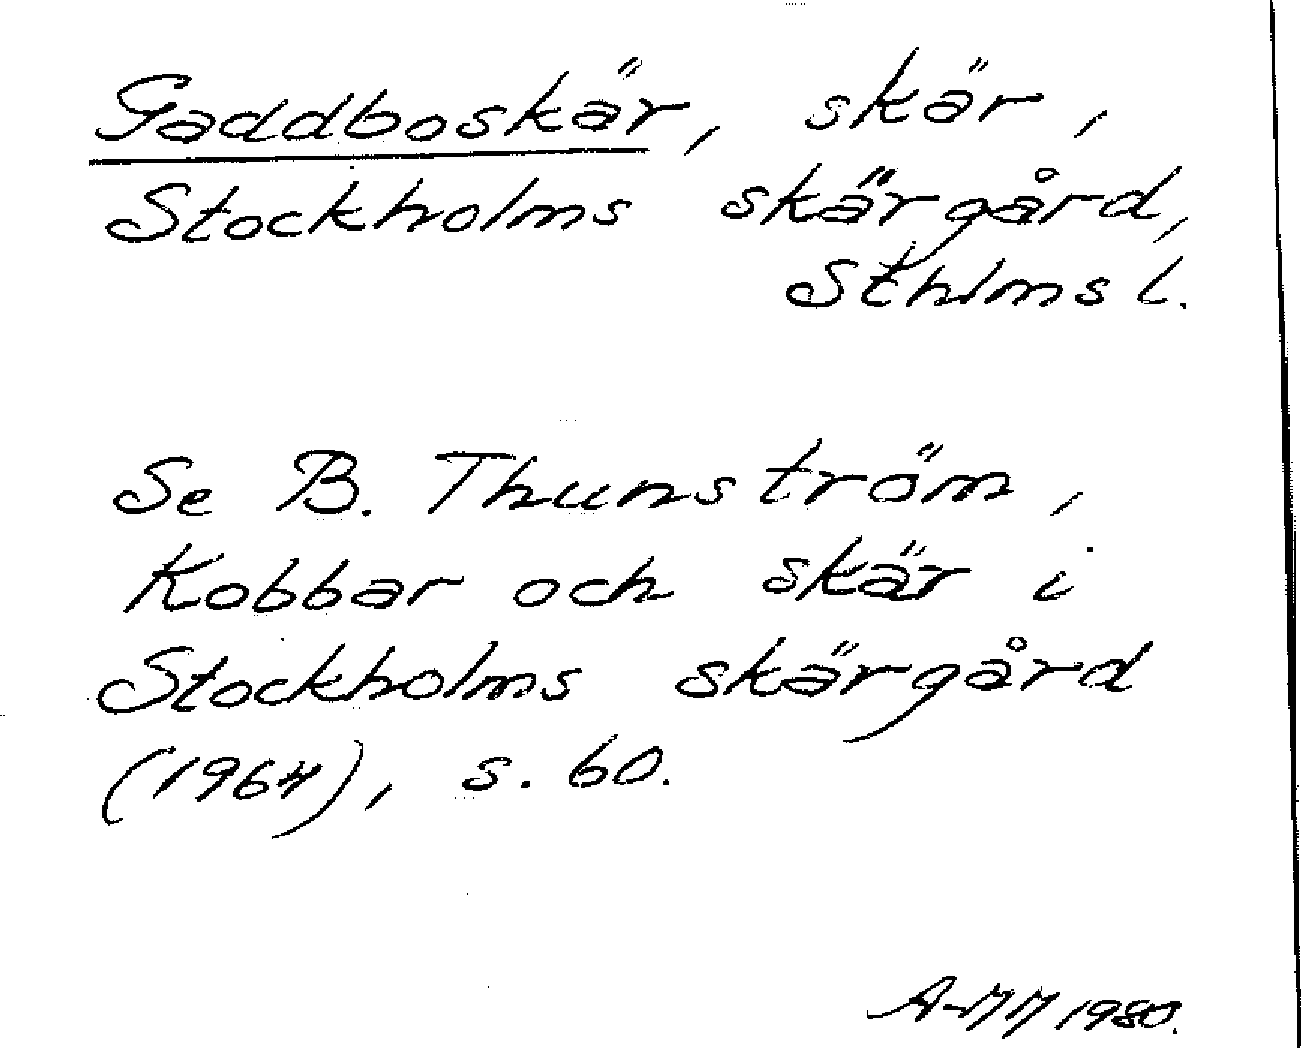 Gaddboskär, skär,
Stockholms skärgård,
Sthlms l.
Se B. Thunström,
Kobbar och skär i
Stockholms skärgård
(1964), s. 60.
A-MM 1980.